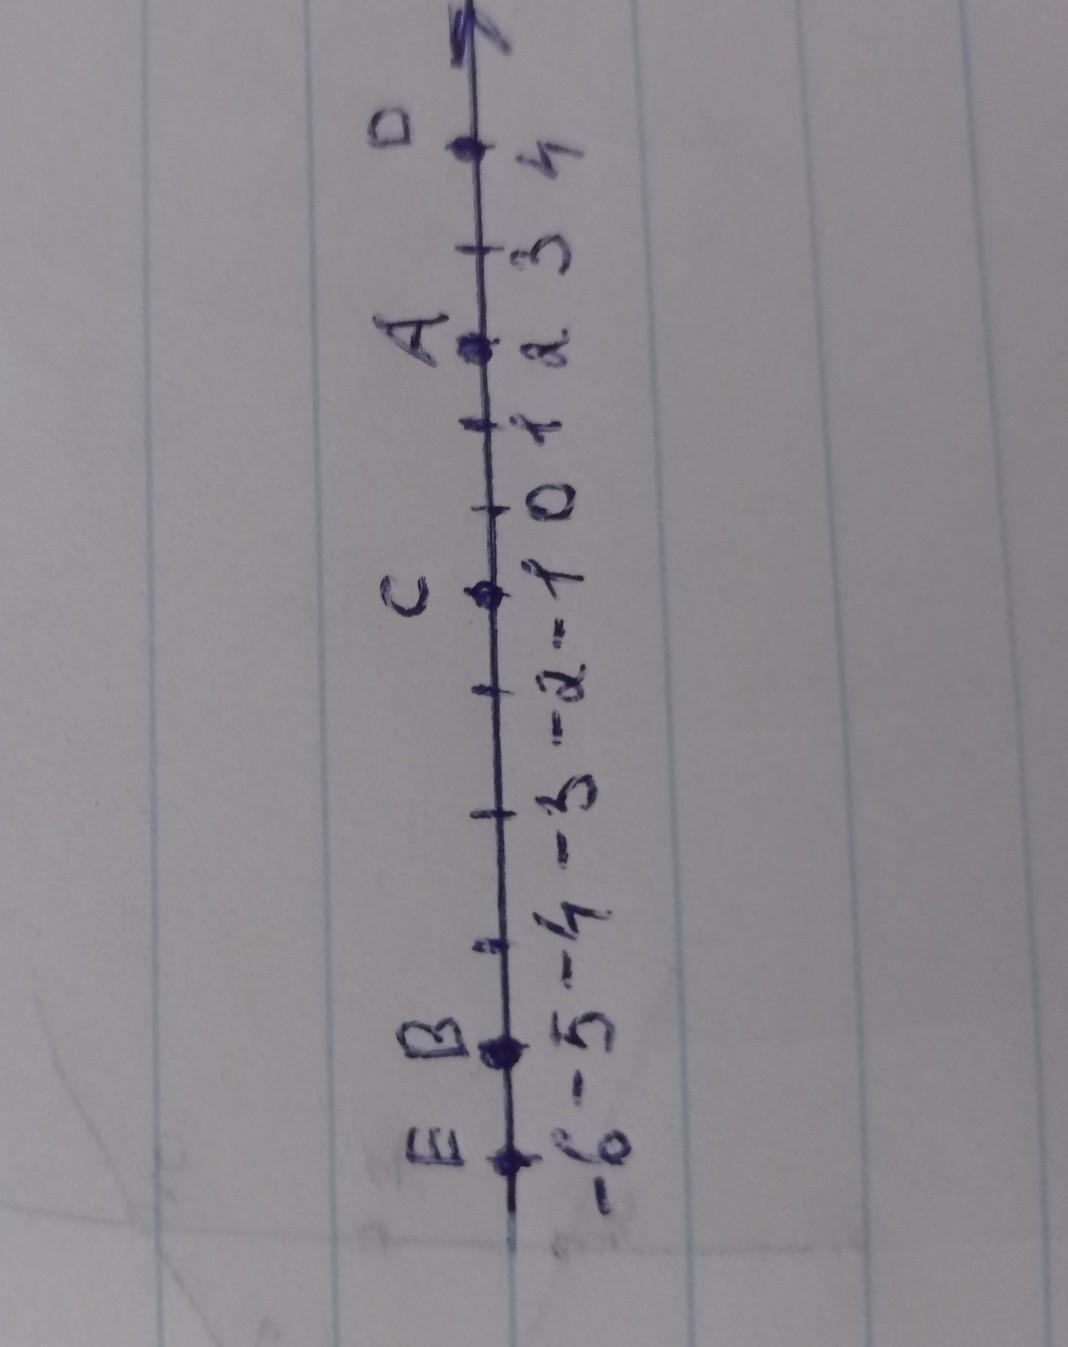 E B C A D
-6 -5 -4 -3 -2 -1 0 1 2 3 4